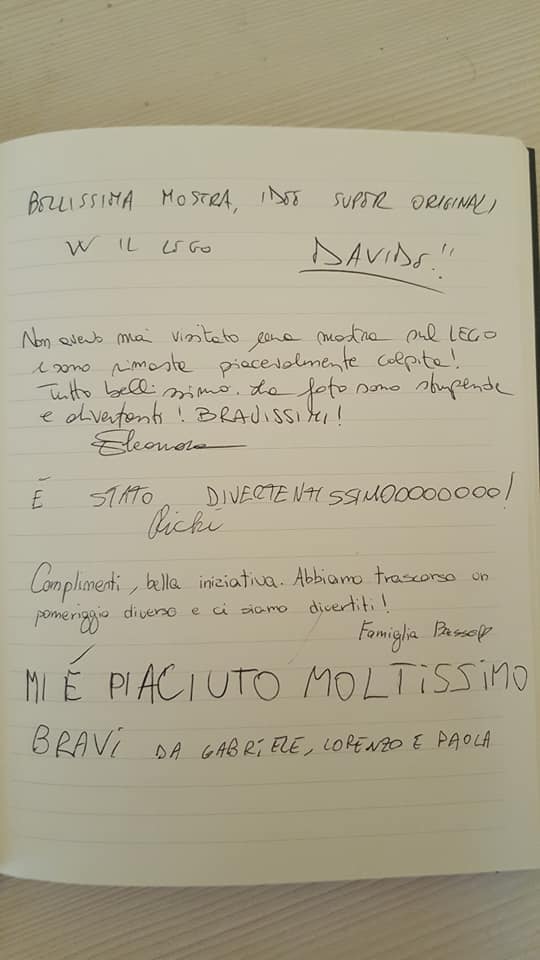 BELLISSIMA MOSTRA, IDEE SUPER ORIGINALI
W IL LEGO DAVIDE!!
Non avevo mai visitato una mostra sul LEGO
e sono rimasta piacevolmente colpita!
Tutto bellissimo. Le foto sono stupende
e divertenti! BRAVISSIMI!
Eleonora
É STATO DIVERTENTISSIMOOOOOOOO!
Ricki
Complimenti, bella iniziativa. Abbiamo trascorso un
pomeriggio diverso e ci siamo divertiti!
Famiglia
MI É PIACIUTO MOLTISSIMO
BRAVI DA GABRIELE, LORENZO E PAOLA